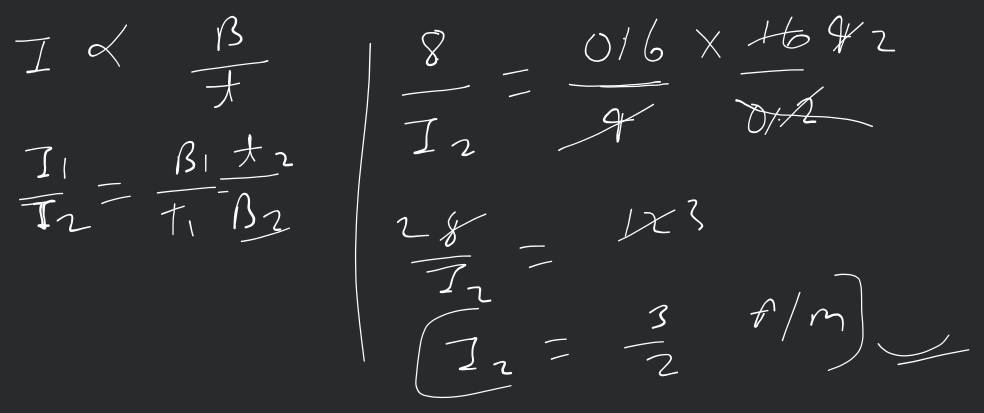 I ∝ B/t
I₁/I₂ = B₁/t₁ t₂/B₂
8/I₂ = 016/4 × 16 4 2/0.2
2 8/I₂ = 12 3
I₂ = 3/2 A/m